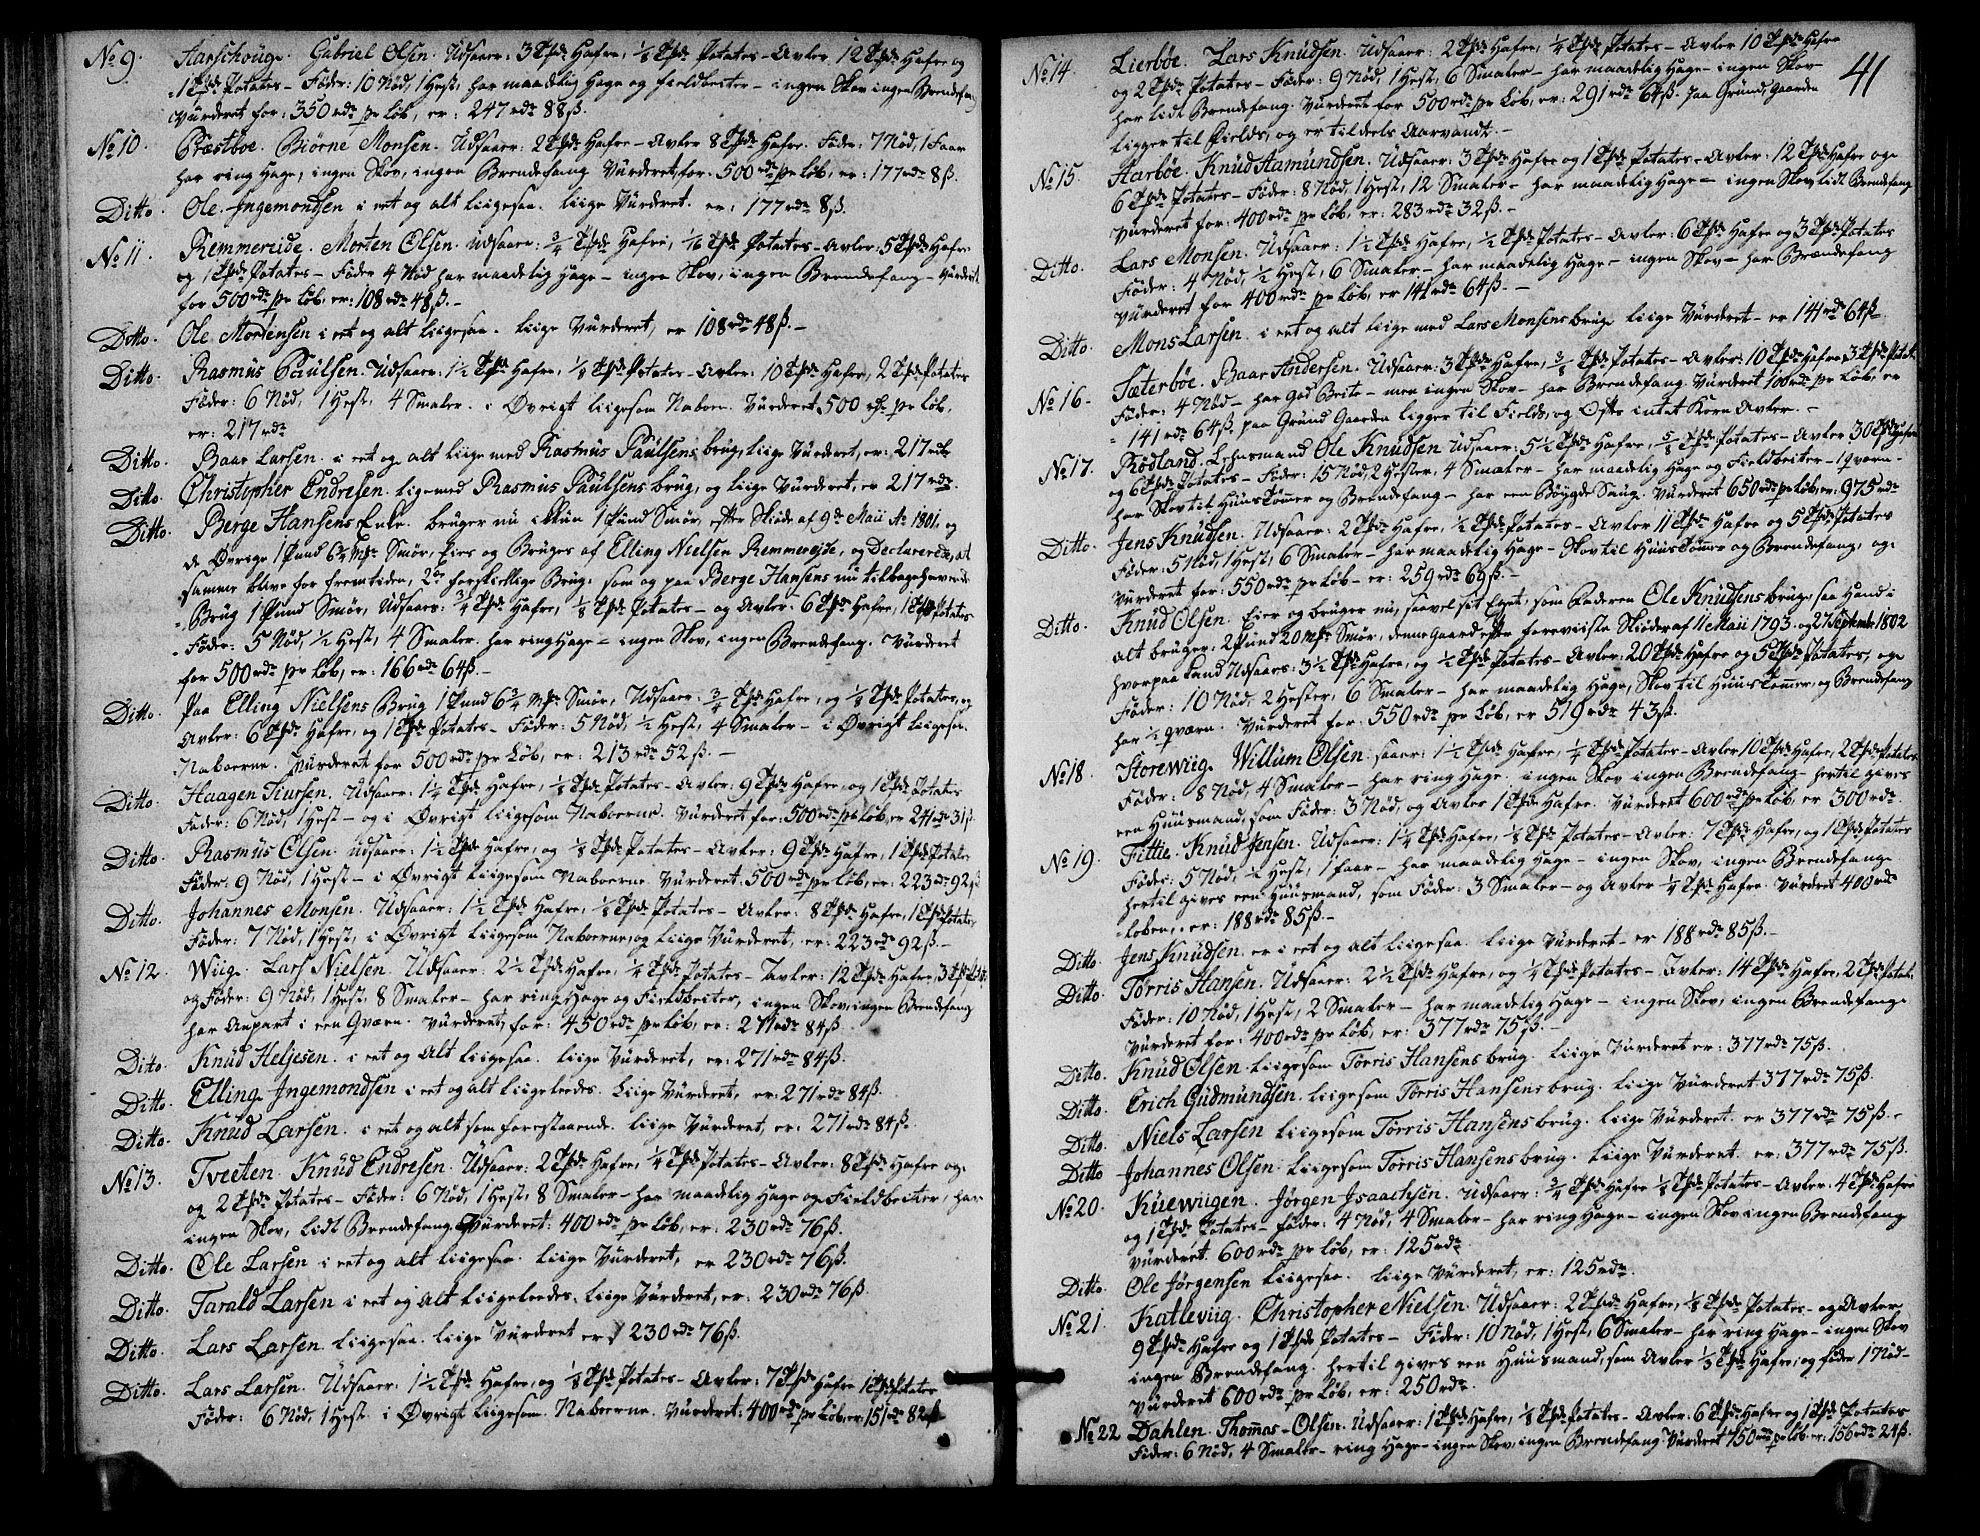 No 9. Aarschoüg. Gabriel Olsen. Udsaaer: 3 Tdr Hafre, 1/8 Tde Potates - Avler 12 Tdr Hafre og
1 Tde Potates - Føder: 10 Nød, 1 Hest, har maadelig Hage og Fieldbeiter - ingen Skov ingen Brendefang
Vürderet for: 350 rdr pr Løb, er: 247 rdr 88 ß.
No 10. Præstbøe. Biørne Monsen. Udsaaer: 2 Tdr Hafre - Avler 8 Tdr Hafre. Føder: 7 Nød, 1 Faar
har ring Hage, ingen Skov, ingen Brendefang Vürderet, for: 500 rdr pr Løb, er: 177 rdr 8 ß.
Ditto. Ole Ingemondsen i eet og alt liigesaa. liige Vürderet. er: 177 rdr 8 ß.
No 11. Remmereide. Morten Olsen. Udsaaer: 3/4 Tde Hafre, 1/16 Tde Potates - Avler: 5 Tdr Hafre
og 1 Tde Potates - Føder 4 Nød har maadelig Hage - ingen Skov, ingen Brendefang - Vürderet
for 500 rdr pr Løb, er: 108 rdr 48 ß. -
Ditto. Ole Mortensen i eet og alt liigesaa. liige Vürderet, er 108 rdr 48 ß. -
Ditto. Rasmus Paulsen. Udsaaer: 1 1/2 Tde Hafre, 1/8 Tde Potates - Avler: 10 Tdr Hafre, 2 Tdr Potates
Føder: 6 Nød, 1 Hest, 4 Smaler. i Øvrigt liigesom Naboen. Vürderet 500 rdr pr Løb,
er: 217 rdr
Ditto. Baar Larsen. i eet og alt liige med Rasmus Paulsens brug, liige Vürderet, er: 217 rdr
Ditto. Christopher Endresen. lige med Rasmus Paulsens brug, og liige Vürderet, er 217 rdr.
Ditto. Berge Hansens Enke. brüger nü ikkün 1 Pund Smør, efter Skiøde af 9de Maii Ao 1801. og
de Øvrige 1 Pund 6 3/4 Mrk Smør, Eies og Brüges af Elling Nielsen Remmereide, og Declarerede, at
samme blive for fremtiden, 2de forskiellige Brüg. som og paa Berge Hansens nü tilbagehavende
Brüg 1 Pund Smør, Udsaaer: 3/4 Tde Hafre, 1/8 Tde Potates - og Avler: 6 Tdr Hafre, 1 Tde Potates
Føder: 5 Nød, 1/2 Hest, 4 Smaler. har ring Hage - ingen Skov, ingen Brendefang. Vürderet
for 500 rdr pr Løb, er: 166 rdr 64 ß. -
Ditto. Paa Elling Nielsens Brüg 1 Pund 6 3/4 Mrk Smør, Udsaaer: 3/4 Tde Hafre, og 1/8 Tde Potates, og
Avler: 6 Tdr Hafre, og 1 Tde Potates - Føder: 5 Nød, 1/2 Hest, 4 Smaler - i Øvrigt liigesom
Naboerne. Vürderet for 500 rdr pr Løb, er: 213 rdr 52 ß. -
Ditto. Haagen Siursen. Udsaaer: 1 1/4 Tde Hafre, 1/8 Tde Potates - Avler: 9 Tdr Hafre, og 1 Tde Potates
Føder: 6 Nød, 1 Hest - og i Øvrigt liigesom Naboerne. Vürderet for: 500 rdr pr Løb, er 241 rdr 31 ß.
Ditto. Rasmüs Olsen. udsaaer: 1 1/2 Tde Hafre, og 1/8 Tde Potates - Avler: 9 Tdr Hafre, 1 Tde Potates
Føder: 9 Nød, 1 Hest - i Øvrigt liigesom Naboerne. Vürderet: 500 rdr pr Løb, er: 223 rdr 92 ß
Ditto. Johannes Monsen. Udsaaer: 1 1/2 Tde Hafre, 1/8 Tde Potates - Avler: 8 Tdr Hafre, 1 Tde Potates
Føder: 7 Nød, 1 Hest, i Øvrigt liigesom Naboerne, og liige Vürderet, er: 223 rdr 92 ß. -
No 12. Wiig. Lars Nielsen. Udsaaer: 2 1/2 Tde Hafre, 1/4 Tde Potates - Avler: 12 Tdr Hafre, 3 Tdr Potates
og Føder: 9 Nød, 1 Hest, 8 Smaler - har ring Hage og Fieldbeiter, ingen Skov, ingen Brendefang
har Anpart i een Qværn. Vürderet, for: 450 rdr pr Løb, er: 271 rdr 84 ß.
Dito. Knüd Heljesen. i eet og Alt liigesaa. liige Vürderet, er: 271 rdr 84 ß.
Ditto. Elling Ingemondsen i eet og alt liigeleedes. Liige Vürderet, er: 271 rdr 84 ß.
Ditto. Knüd Larsen. i eet og alt som forestaaende. liige Vürderet, er: 271 rdr 84 ß.
No 13. Tveeten. Knüd Endresen. Udsaaer: 2 Tdr Hafre, 1/4 Tde Potates - Avler: 8 Tdr Hafre og
og 2 Tdr Potates - Føder: 6 Nød, 1 Hest, 8 Smaler - har maadelig Hage og Fieldbeiter, har
ingen Skov, lidt Brendefang. Vürderet: 400 rdr pr Løb, er: 230 rdr 76 ß.
Ditto. Ole Larsen i eet og alt liigesaa. liige Vürderet, er 230 rdr 76 ß.
Ditto. Tarald Larsen i eet og Alt liigeleedes. liige Vürderet, er: 230 rdr 76 ß.
Ditto. Lars Larsen. liigesaa. liige Vürderet er: 230 rdr 76 ß.
Ditto. Lars Larsen. Udsaaer: 1 1/2 Tde Hafre, og 1/8 Tde Potates - Avler: 7 Tdr Hafre 1 Tde Potates
Føder: 6 Nød, 1 Hest. i Øvrigt liigesom Naboerne. Vürderet: 400 rdr pr Løb, er: 151 rdr 82 ß
41
No 14. Lierbøe. Lars Knüdsen. Udsaaer: 2 Tdr Hafre, 1/4 Tde Potates - Avler 10 Tdr Hafre
og 2 Tdr Potates - Føder: 9 Nød, 1 Hest, 6 Smaler - har maadelig Hage - ingen Skov -
har lidt Brendefang. Vürderet for 500 rdr pr Løb, er: 291 rdr 64 ß. paa Gründ Gaarden
ligger til Fields, og er tildeels Aarvandt. -
No 15. Aarbøe. Knüd Aamündsen. Udsaaer: 3 Tdr Hafre og 1 Tde Potates - Avler: 12 Tdr Hafre og
6 Tdr Potates - Føder: 8 Nød, 1 Hest, 12 Smaler - har maadelig Hage - ingen Skov lidt Brendefang
Vürderet for: 400 rdr pr Løb, er: 283 rdr 32 ß. -
Ditto. Lars Monsen. Udsaaer: 1 1/2 Tde Hafre, 1/2 Tde Potates - Avler: 6 Tdr Hafre og 3 Tdr Potates
Føder: 4 Nød, 1/2 Hest, 6 Smaler - har maadelig Hage - ingen Skov - har Brændefang
Vürderet for 400 rdr pr Løb, er 141 rdr 64 ß. -
Ditto. Mons Larsen. i eet og alt liige med Lars Monsens brüg liige Vürderet - er 141 rdr 64 ß
No 16. Sæterbøe. Baar Andersen. Udsaaer: 3 Tdr Hafre, 3/8 Tde Potates - Avler: 10 Tdr Hafre, 3 Tdr Potat.
Føder: 4 Nød - har god Beite - men ingen Skov - har Brendefang Vürderet 100 rdr pr Løb. er
141 rdr 64 ß. paa Gründ Gaarden ligger til Fields, og Ofte intet Korn Avler. -
No 17. Rødland. Lehnsmand Ole Knüdsen Udsaaer: 5 1/2 Tde Hafre, 5/8 Tde Potates - Avler 30 Tdr Hafre
og 6 Tdr Potates - Føder: 15 Nød, 2 Hester, 4 Smaler - har maadelig Hage og Fieldbeiter - 1 qværn -
har Skov til Hüüstømer og Brendefang - har een Bøygde Saüg. Vürderet 650 rdr pr Løb, er: 975 rdr
Ditto. Jens Knüdsen. Udsaaer: 2 Tdr Hafre, 1/2 Tde Potates - Avler 11 Tdr Hafre og 5 Tdr Potates
Føder: 5 Nød, 1 Hest, 6 Smaler - har maadelig Hage - Skov til Hüüstømer og Brendefang, og
Vürderet for: 550 rdr pr Løb - er: 259 rdr 69 ß. -
Ditto. Knüd Olsen. Eier og brüger nü, saavel sit Eget, som Faderen Ole Knüdsens brüg, saa Hand i
alt brüger: 2 Pund 20 Mrk Smør, denne Gaard efter foreviiste Skiøder af 11 Maii 1793. og 27 September 1802
hvorpaa Hand Udsaaer: 3 1/2 Tde Hafre, og 1/2 Tde Potates - Avler: 20 Tdr Hafre og 5 Tdr Potates, og
Føder: 10 Nød, 2 Hester, 6 Smaler - har maadelig Hage, Skov til Hüüstømer, og Brendefang
har 1/2 qværn. Vürderet for: 550 rdr pr Løb, er 519 rdr 43 ß.
No 18. Storewiig. Willum Olsen. saaer: 1 1/2 Tde Hafre, 1/4 Tde Potates - Avler 10 Tdr Hafre, 2 Tdr Potates
Føder: 8 Nød, 4 Smaler - har ring Hage. ingen Skov ingen Brendefang - hertil gives
een Hüüsmand, som Føder: 3 Nød, og Avler 1 Tde Hafre. Vürderet 600 rdr pr Løb, er 300 rdr.
No 19. Fittie. Knüd Jensen. Udsaaer: 1 1/4 Tde Hafre, 1/8 Tde Potates - Avler: 7 Tdr Hafre, og 1 Tde Potates
Føder: 5 Nød, 1/2 Hest, 1 faar - har maadelig Hage - ingen Skov, ingen Brendefang
hertil gives een Hüüsmand, som Føder: 3 Smaler - og Avler 1/4 Tde Hafre. Vürderet 400 rdr
Løben, er: 188 rdr 85 ß. -
Ditto. Jens Knüdsen. er i eet og alt liigesaa. liige Vürderet - er 188 rdr 85 ß. -
Ditto. Tørris Hansen. Udsaaer: 2 1/2 Tde Hafre, og 1/4 Tde Potates - Avler: 14 Tdr Hafre, 2 Tdr Potates
Føder: 10 Nød, 1 Hest, 2 Smaler - har maadelig Hage - ingen Skov, ingen Brendefang
Vürderet for: 400 rdr pr Løb, er: 377 rdr 75 ß. -
Ditto. Knüd Olsen. liigesom Tørris Hansens brüg. liige Vürderet er: 377 rdr 75 ß.
Ditto. Erich Güdmündsen. liigesom Tørris Hansens brug. liige Vürderet 377 rdr 75 ß.
Ditto. Niels Larsen liigesom Tørris Hansens brüg. liige Vürderet. er 377 rdr 75 ß. -
Ditto Johannes Olsen. Liigesom Tørris Hansens brüg. liige Vürderet. er: 377 rdr 75 ß.
No 20. Küewiigen. Jørgen Isaachsen. Udsaaer: 3/4 Tde Hafre 1/8 Tde Potates - Avler: 4 Tdr Hafre
og 1 Tde Potates - føder: 4 Nød, 4 Smaler - har ring Hage - ingen Skov ingen Brendefang
Vürderet. 600 rdr pr Løb, er: 125 rdr.
Ditto. Ole Jørgensen Liigesaa. liige Vürderet, er: 125 rdr.
No 21. Katleviig. Christopher Nielsen. Udsaaer: 2 Tdr Hafre, 1/8 Tde Potates - og Avler
9 Tdr Hafre og 1 Tde Potates - Føder: 10 Nød, 1 Hest, 6 Smaler - har ring Hage - ingen Skov
ingen Brendefang. hertil gives een Hüüsmand, som Avler 1/3 Tde Hafre, og føder 1 Nød -
Vürderet 600 rdr pr Løb, er: 250 rdr.
No 22 Dahlen. Thomas Olsen. Udsaaer: 1 Tde Hafre, 1/8 Tde Potates - Avler: 6 Tdr Hafre og 1 Tde Potates
Føder: 6 Nød, 4 Smaler - ring Hage - ingen Skov, ingen Brendefang Vürderet 750 rdr pr Løb. er: 156 rdr 24 ß.